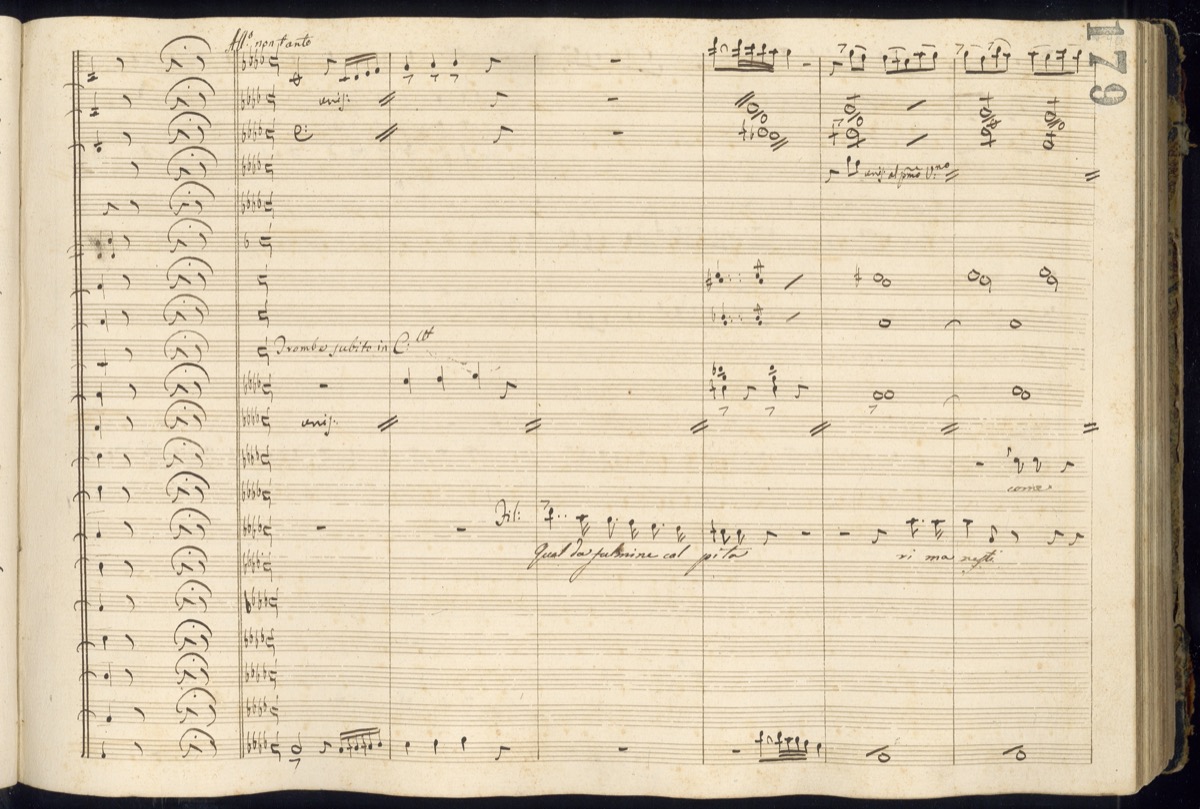 179
All.º non tanto
unis:
unis: al pmo V.no
Trombe subito in C: lft
unis:
come
Fil:
Qual da fulmine col pita
ri ma nesti